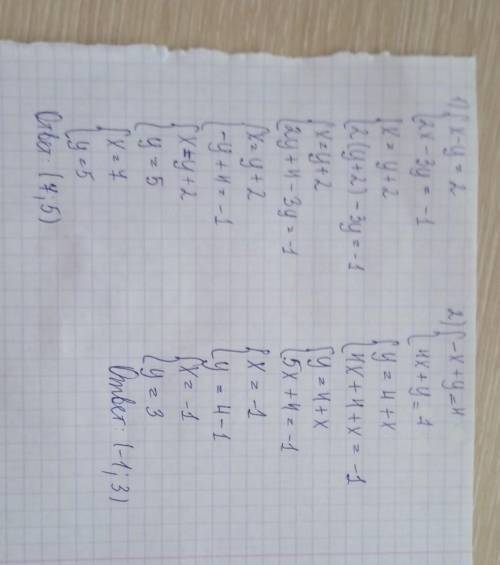 1) { x - y = 2
{ 2x - 3y = -1
{ x = y + 2
{ 2(y+2) - 3y = -1
{ x = y + 2
{ 2y + 4 - 3y = -1
{ x = y + 2
{ -y + 4 = -1
{ x = y + 2
{ y = 5
{ x = 7
{ y = 5
Ответ: (7;5)
2) { -x + y = 4
{ 4x + y = 1
{ y = 4 + x
{ 4x + 4 + x = -1
{ y = 4 + x
{ 5x + 4 = -1
{ x = -1
{ y = 4 - 1
{ x = -1
{ y = 3
Ответ: (-1;3)